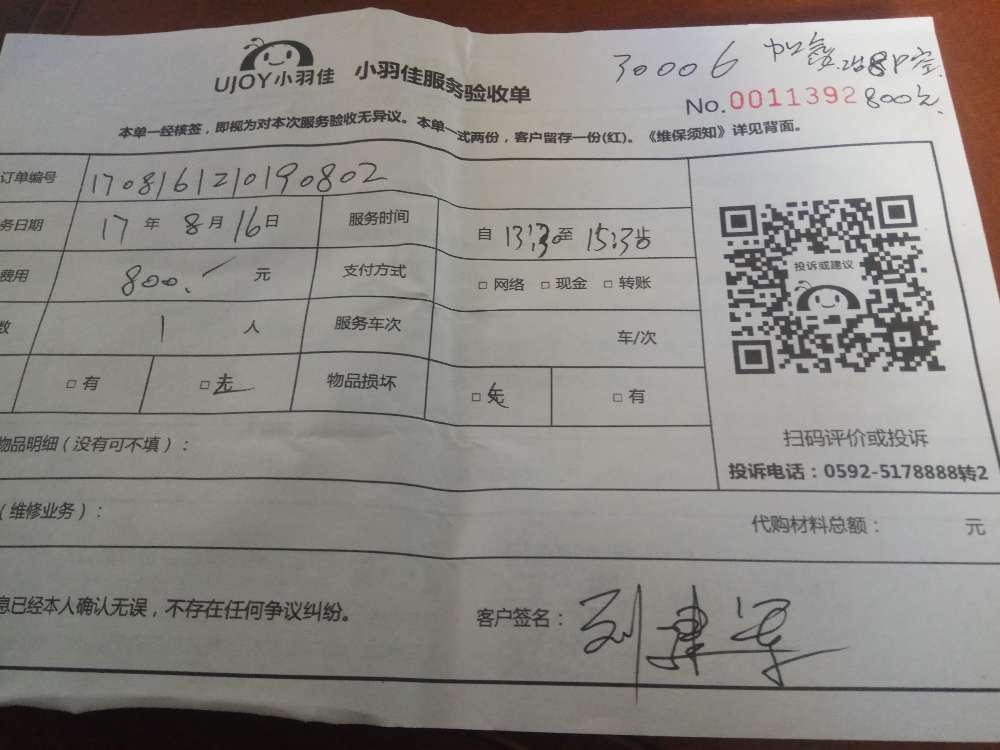 30006
UJOY小羽佳 小羽佳服务验收单
No.0011392 800元
本单一经核签，即视为对本次服务验收无异议。本单一式两份，客户留存一份(红)。《维保须知》详见背面。
订单编号 1708161210190802
务日期 17年8月16日 服务时间 自13:30至15:30
费用 800.元 支付方式 □网络 □现金 □转账
数 1人 服务车次 车/次
□有 □无 物品损坏 □无 □有
投诉或建议
扫码评价或投诉
投诉电话：0592-5178888转2
物品明细（没有可不填）：
（维修业务）： 代购材料总额： 元
息已经本人确认无误，不存在任何争议纠纷。 客户签名：刘建军